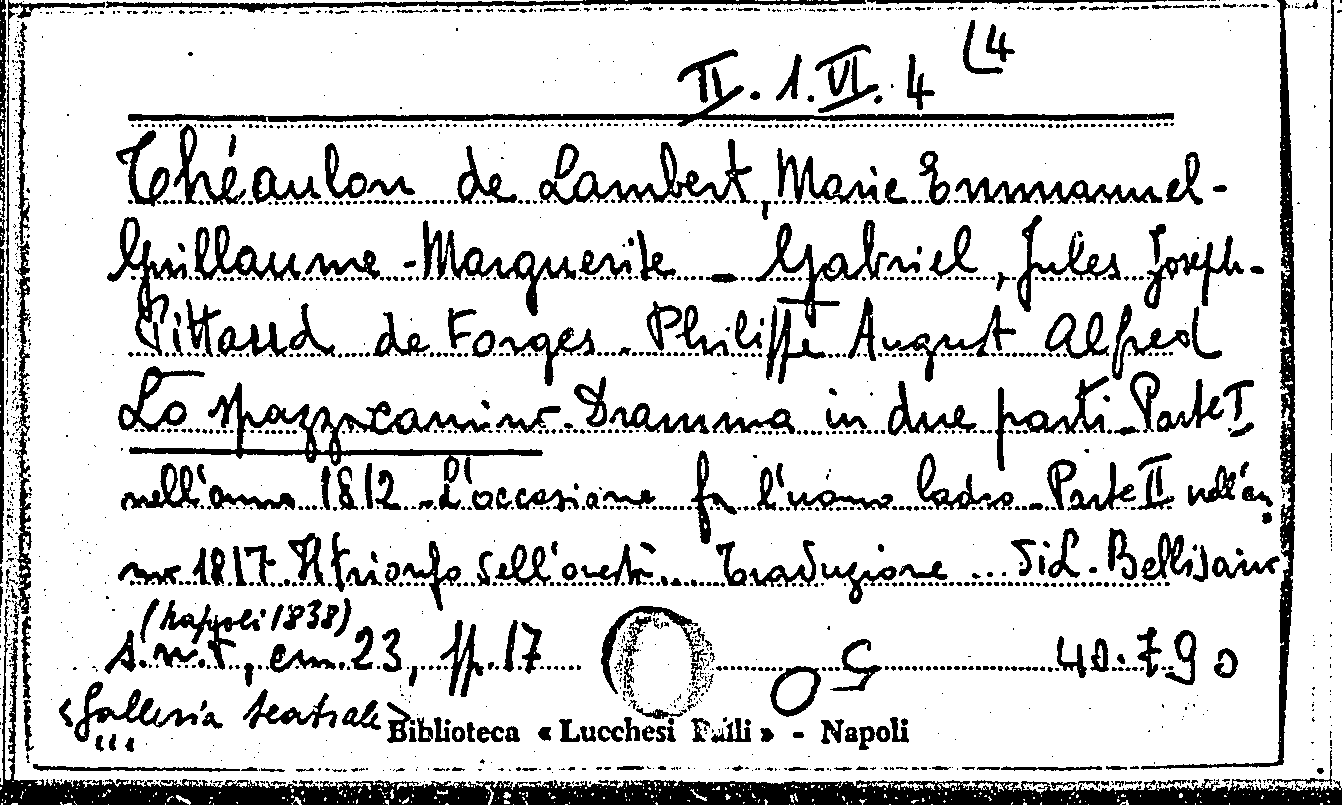 II. 1. VI. 4 (4
Théaulon de Lambert, Marie Emmanuel-
Guillaume-Marguerite - Gabriel, Jules Joseph-
Pittaud de Forges - Philippe August Alfred
Lo spazzacamino. Dramma in due parti - Parte I
nell'anno 1812 - L'occasione fa l'uomo ladro - Parte II nell'an
no 1817. Il trionfo dell'onestà... Traduzione ... di L. Bellisario
(Napoli 1838)
s.n.t, cm. 23, pp. 17 40.790
<Galleria teatrale>
Biblioteca « Lucchesi Palli » - Napoli